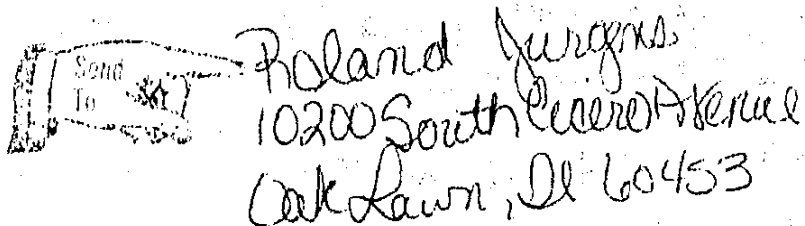 Send
To
Roland Jurgens
10200 South Cicero Avenue
Oak Lawn, Il 60453